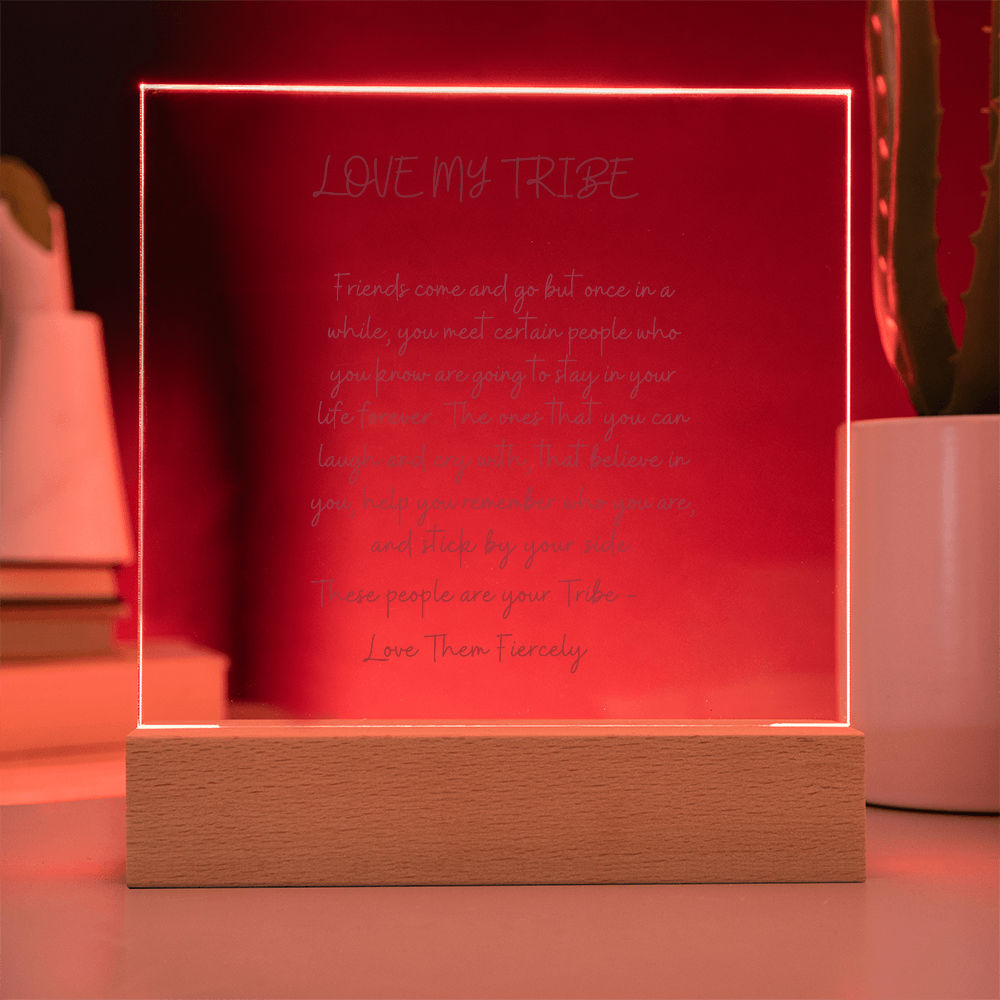 LOVE MY TRIBE
Friends come and go but once in a
while, you meet certain people who
you know are going to stay in your
life forever. The ones that you can
laugh and cry with, that believe in
you, help you remember who you are,
and stick by your side.
These people are your Tribe -
Love Them Fiercely